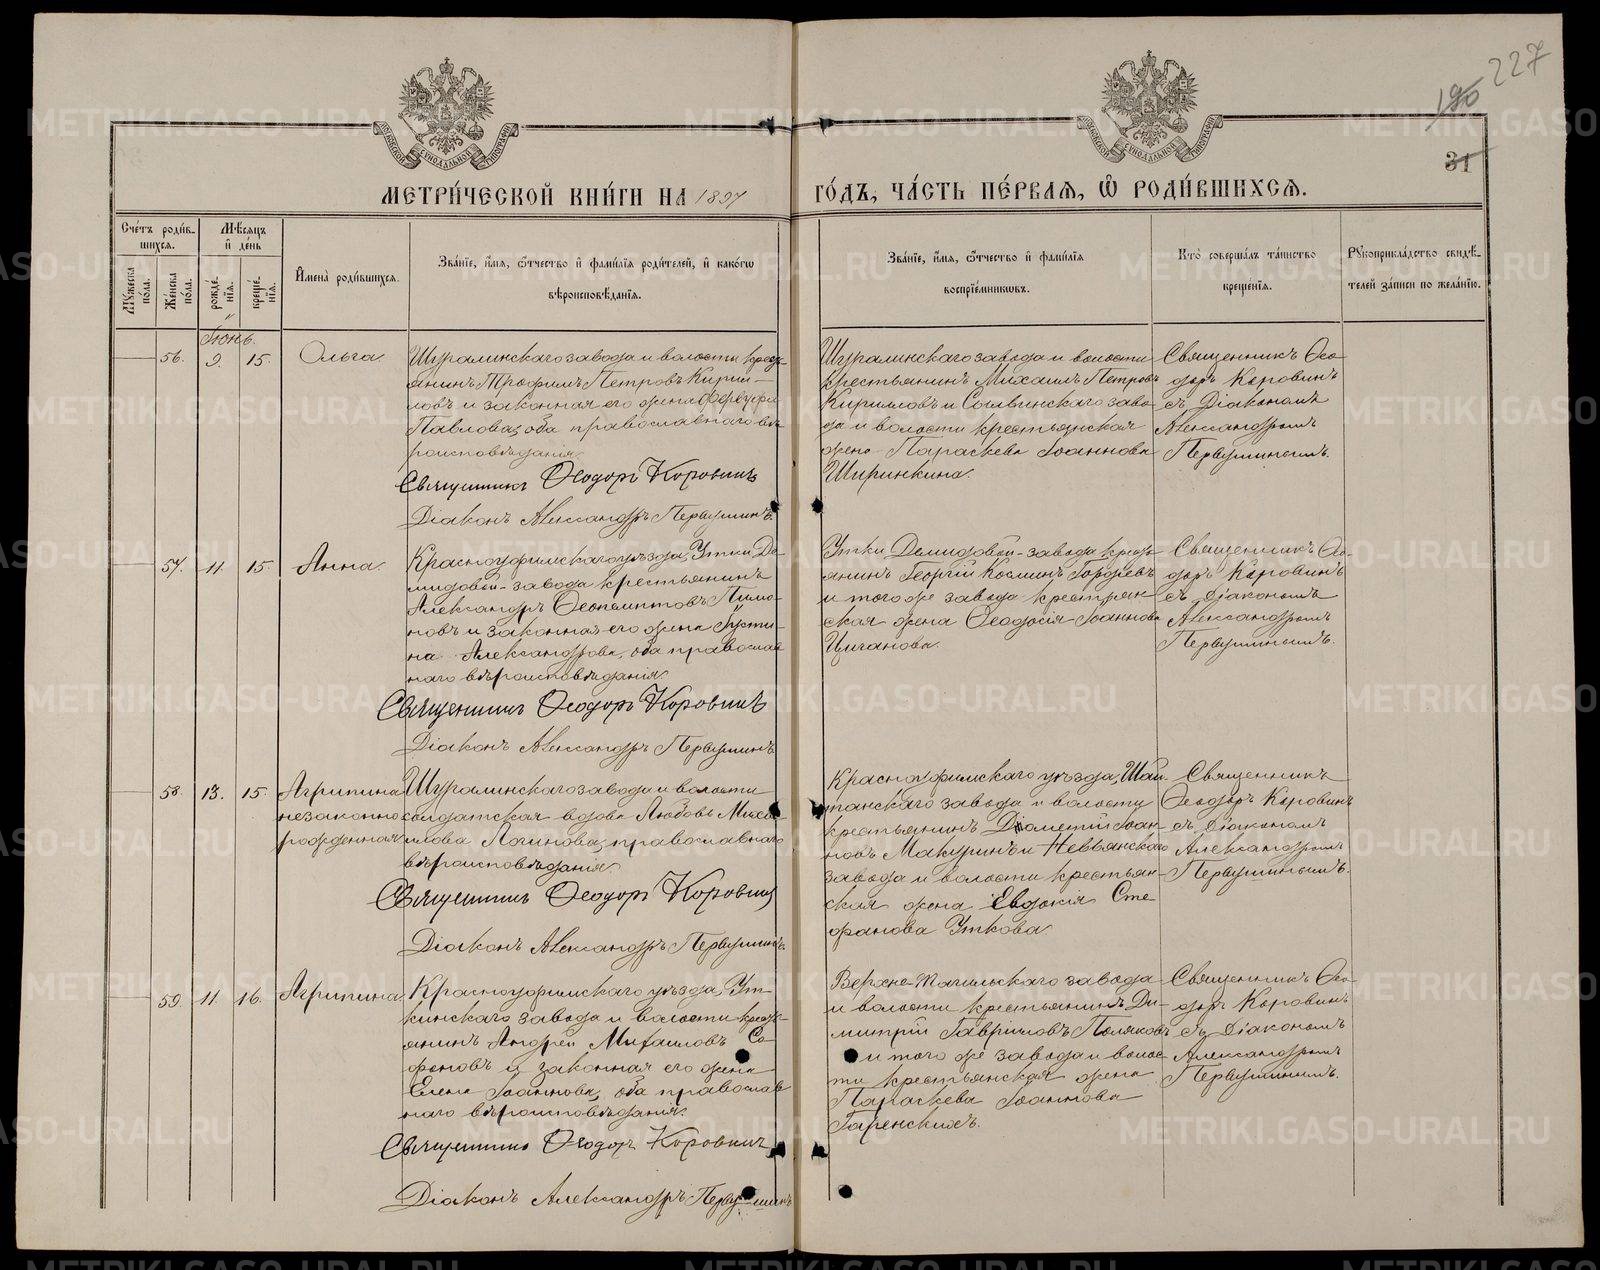 227
190
31
МОСКОВСКОЙ СѴНОДАЛЬНОЙ ТИПОГРАФІИ
МОСКОВСКОЙ СѴНОДАЛЬНОЙ ТИПОГРАФІИ
МЕТРИ́ЧЕСКОЙ КНИ́ГИ НА 1897
ГО́ДЪ, ЧА́СТЬ ПЕ́РВАѦ, Ѽ РОДИ́ВШИХСѦ.
Сче́тъ роди́в-
шихсѧ.
Мѣ́сѧцъ
и҆ де́нь
Мꙋ́жеска по́ла.
Же́нска по́ла.
рожде́-
нїѧ.
креще́-
нїѧ.
И҆мена̀ роди́вшихсѧ.
Зва́нїе, и҆́мѧ, ѻ҆́тчество и҆ фами́лїѧ роди́телей, и҆ како́гѡ
вѣроисповѣ́данїѧ.
Зва́нїе, и҆́мѧ, ѻ҆́тчество и҆ фами́лїѧ
воспрїе́мникѡвъ.
Кто̀ соверша́лъ та́инство
креще́нїѧ.
Рꙋкоприкла́дство свидѣ́-
телей за́писи по жела́нїю.
Іюнь.
56. 9. 15. Ольга.
Шуралинскаго завода и волости крест-
янинъ Трофимъ Петровъ Кирил-
ловъ и законная его жена
Павлова, оба православнаго вѣ-
роисповѣданія.
Священникъ Ѳеодоръ Коровинъ
Діаконъ Александръ Первушинъ.
Шуралинскаго завода и волости
крестьянинъ Михаилъ Петровъ
Кирилловъ и заво-
да и волости крестьянская
жена Параскева Іоаннова
Ширинкина.
Священникъ Ѳео-
доръ Коровинъ
съ Діакономъ
Александромъ
Первушинымъ.
57. 11. 15. Анна.
Красноуфимскаго уѣзда, Утки Де-
мидовой завода крестьянинъ
Александръ Пимо-
новъ и законная его жена Іусти-
на Александрова, оба православ-
наго вѣроисповѣданія.
Священникъ Ѳеодоръ Коровинъ
Діаконъ Александръ Первушинъ.
Утки Демидовой завода крест-
янинъ Георгій Косминъ Гордѣевъ
и того же завода крестьян-
ская жена Ѳеодосія Іоаннова
Цыганова.
Священникъ Ѳео-
доръ Коровинъ
съ Діакономъ
Александромъ
Первушинымъ.
58. 13. 15. Агрипина
незаконно
рожденная
Шуралинскаго завода и волости
солдатская вдова Любовь Миха-
илова Логинова, православнаго
вѣроисповѣданія.
Священникъ Ѳеодоръ Коровинъ
Діаконъ Александръ Первушинъ.
Красноуфимскаго уѣзда, Шай-
танскаго завода и волости
крестьянинъ Діомидій Іоан-
новъ Макуринъ и Невьянскаго
завода и волости крестьян-
ская жена Евдокія Сте-
фанова Уткова.
Священникъ
Ѳеодоръ Коровинъ
съ Діакономъ
Александромъ
Первушинымъ.
59. 11. 16. Агрипина.
Красноуфимскаго уѣзда, Ут-
кинскаго завода и волости крест-
янинъ Андрей Михаиловъ Са-
фоновъ и законная его жена
Елена Іоаннова, оба православ-
наго вѣроисповѣданія.
Священникъ Ѳеодоръ Коровинъ
Діаконъ Александръ Первушинъ
Верхне-Тагильскаго завода
и волости крестьянинъ Ди-
митрій Гавриловъ Поляковъ
и того же завода и волос-
ти крестьянская жена
Параскева Іоаннова
Гаренскихъ.
Священникъ Ѳео-
доръ Коровинъ
съ Діакономъ
Александромъ
Первушинымъ.
METRIKI.GASO-URAL.RU